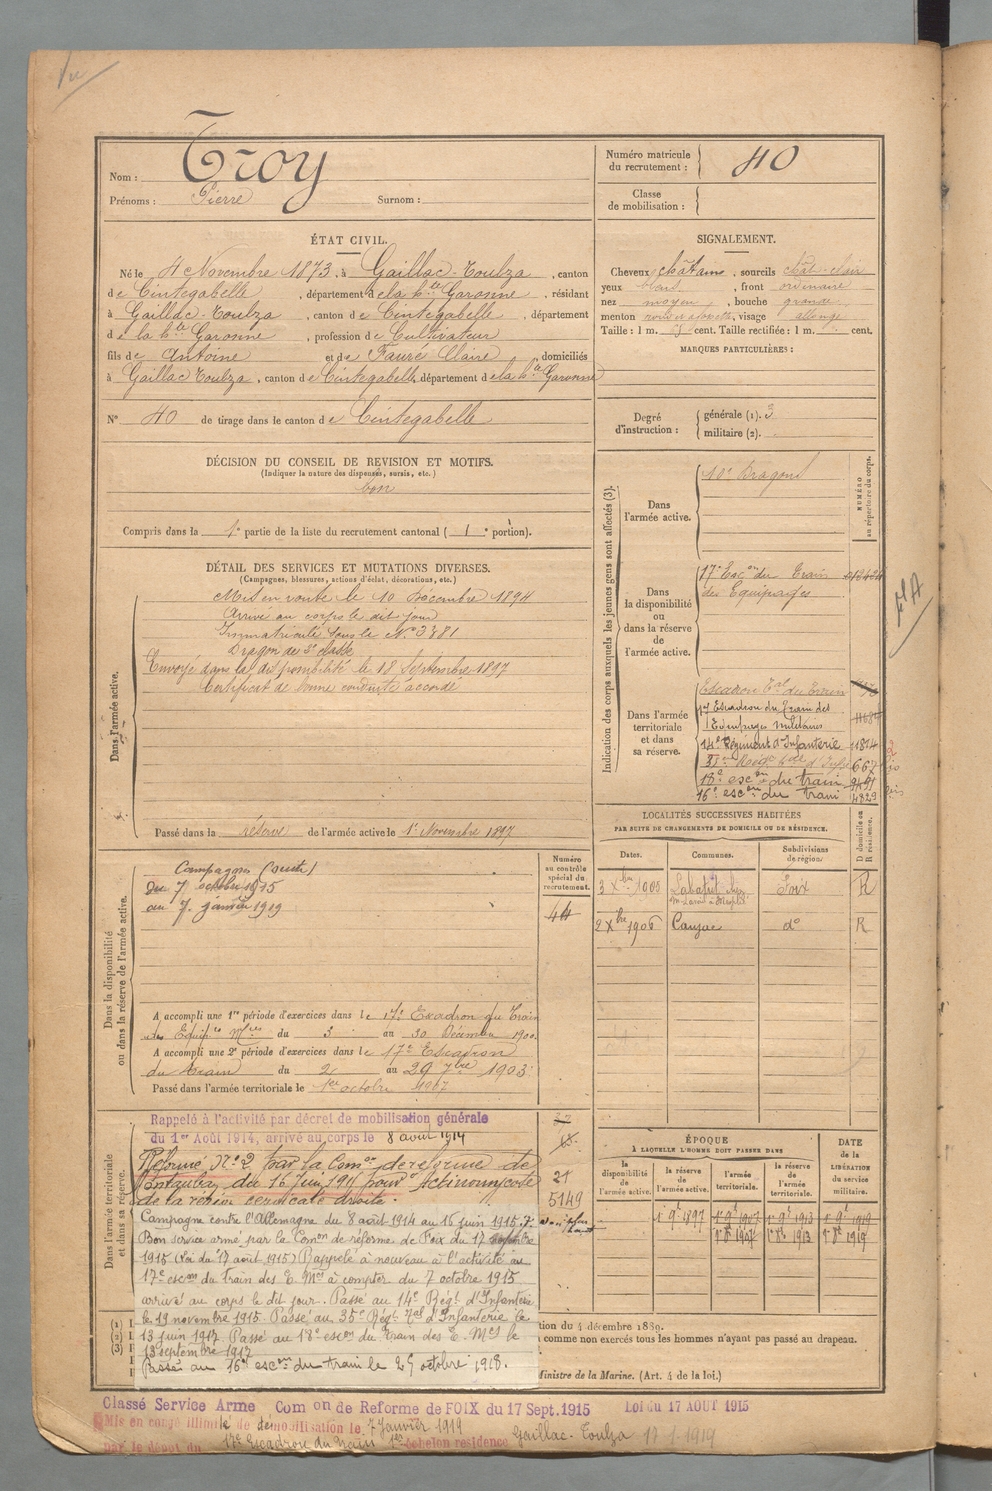 Vu
Nom : Troy
Prénoms : Pierre Surnom :
Numéro matricule du recrutement : 40
Classe de mobilisation :
ÉTAT CIVIL.
Né le 4 Novembre 1873, à Gaillac-Toulza, canton
de Cintegabelle, département de la hte Garonne, résidant
à Gaillac-Toulza, canton de Cintegabelle, département
d e la hte Garonne, profession de Cultivateur
fils de Antoine et de Fauré Claire, domiciliés
à Gaillac Toulza, canton de Cintegabelle, département de la hte Garonne
N° 40 de tirage dans le canton de Cintegabelle
SIGNALEMENT.
Cheveux châtains, sourcils chât-clair
yeux bleus, front ordinaire
nez moyen, bouche grande
menton visage allongé
Taille : 1 m. cent. Taille rectifiée : 1 m. cent.
MARQUES PARTICULIÈRES :
Degré d'instruction :
générale (1). 3
militaire (2).
DÉCISION DU CONSEIL DE REVISION ET MOTIFS.
(Indiquer la nature des dispenses, sursis, etc.)
bon
Compris dans la 1e partie de la liste du recrutement cantonal ( 1e portion).
DÉTAIL DES SERVICES ET MUTATIONS DIVERSES.
(Campagnes, blessures, actions d'éclat, décorations, etc.)
Dans l'armée active.
Mis en route le 10 Décembre 1894
Arrivé au corps le dit jour
Immatriculé sous le N° 3381
Dragon de 2e classe
Envoyé dans la disponibilité le 18 Septembre 1897
Certificat de bonne conduite accordé
Passé dans la réserve de l'armée active le 1er Novembre 1897
Indication des corps auxquels les jeunes gens sont affectés (3).
NUMÉRO au répertoire du corps.
Dans l'armée active.
10e Dragons
Dans la disponibilité ou dans la réserve de l'armée active.
17e Escon du Train
des Equipages
Dans l'armée territoriale et dans sa réserve.
Escadron Tal du Train
17 Escadron du Train des
Equipages Militaires
14e Régiment d'Infanterie 11814
35e Régt tal d'Infie 667
18e escon du train
16e escon du train 4829
LOCALITÉS SUCCESSIVES HABITÉES
PAR SUITE DE CHANGEMENTS DE DOMICILE OU DE RÉSIDENCE.
Dates. Communes. Subdivisions de région. D domicile ou R résidence.
3 Xbre 1905 Foix R
2 Xbre 1906 Canjac do R
Dans la disponibilité ou dans la réserve de l'armée active.
Numéro au contrôle spécial du recrutement.
44
Campagne (suite)
Du 7 octobre 1915
au 7 janvier 1919
A accompli une 1re période d'exercices dans le 17e Escadron du Train
des Equipes Mres du 3 au 30 Décembre 1900
A accompli une 2e période d'exercices dans le 17e Escadron
du Train du 2 au 29 7bre 1903
Passé dans l'armée territoriale le 1er octobre 1907
Dans l'armée territoriale et dans sa réserve.
Rappelé à l'activité par décret de mobilisation générale
du 1er Août 1914, arrivé au corps le 8 août 1914
Réformé N° 2 par la Comon de réforme de
Montauban du 16 juin 1915 pour Actinomycose
de la région cervicale droite.
21
5149
Campagne contre l'Allemagne du 8 août 1914 au 16 juin 1915.
Bon service armé par la Comon de réforme de Foix du 17 septembre
1915 (Loi du 17 août 1915) Rappelé à nouveau à l'activité au
17e escon du train des E. Mres à compter du 7 octobre 1915
arrivé au corps le dit jour. Passé au 14e Régt d'Infanterie
le 19 novembre 1915. Passé au 35e Régt Tal d'Infanterie le
13 juin 1917. Passé au 18e escon du Train des E. Mres le
13 septembre 1917
Passé au 16e escon du train le 25 octobre 1918.
ÉPOQUE
À LAQUELLE L'HOMME DOIT PASSER DANS
la disponibilité de l'armée active. la réserve de l'armée active. l'armée territoriale. la réserve de l'armée territoriale.
DATE de la LIBÉRATION du service militaire.
1er 9bre 1897 1er 9bre 1907 1er 9bre 1913 1er 9bre 1919
1er 8bre 1907 1er 8bre 1913 1er 8bre 1919
(1) I
(2) I
(3) I
tion du 4 décembre 1889.
comme non exercés tous les hommes n'ayant pas passé au drapeau.
Ministre de la Marine. (Art. 4 de la loi.)
Classé Service Armé Comon de Reforme de FOIX du 17 Sept. 1915 Loi du 17 AOUT 1915
Mis en congé illimité de démobilisation le 7 Janvier 1919
par le dépôt du 17e Escadron du Train 1er échelon résidence Gaillac-Toulza 17-1-1919